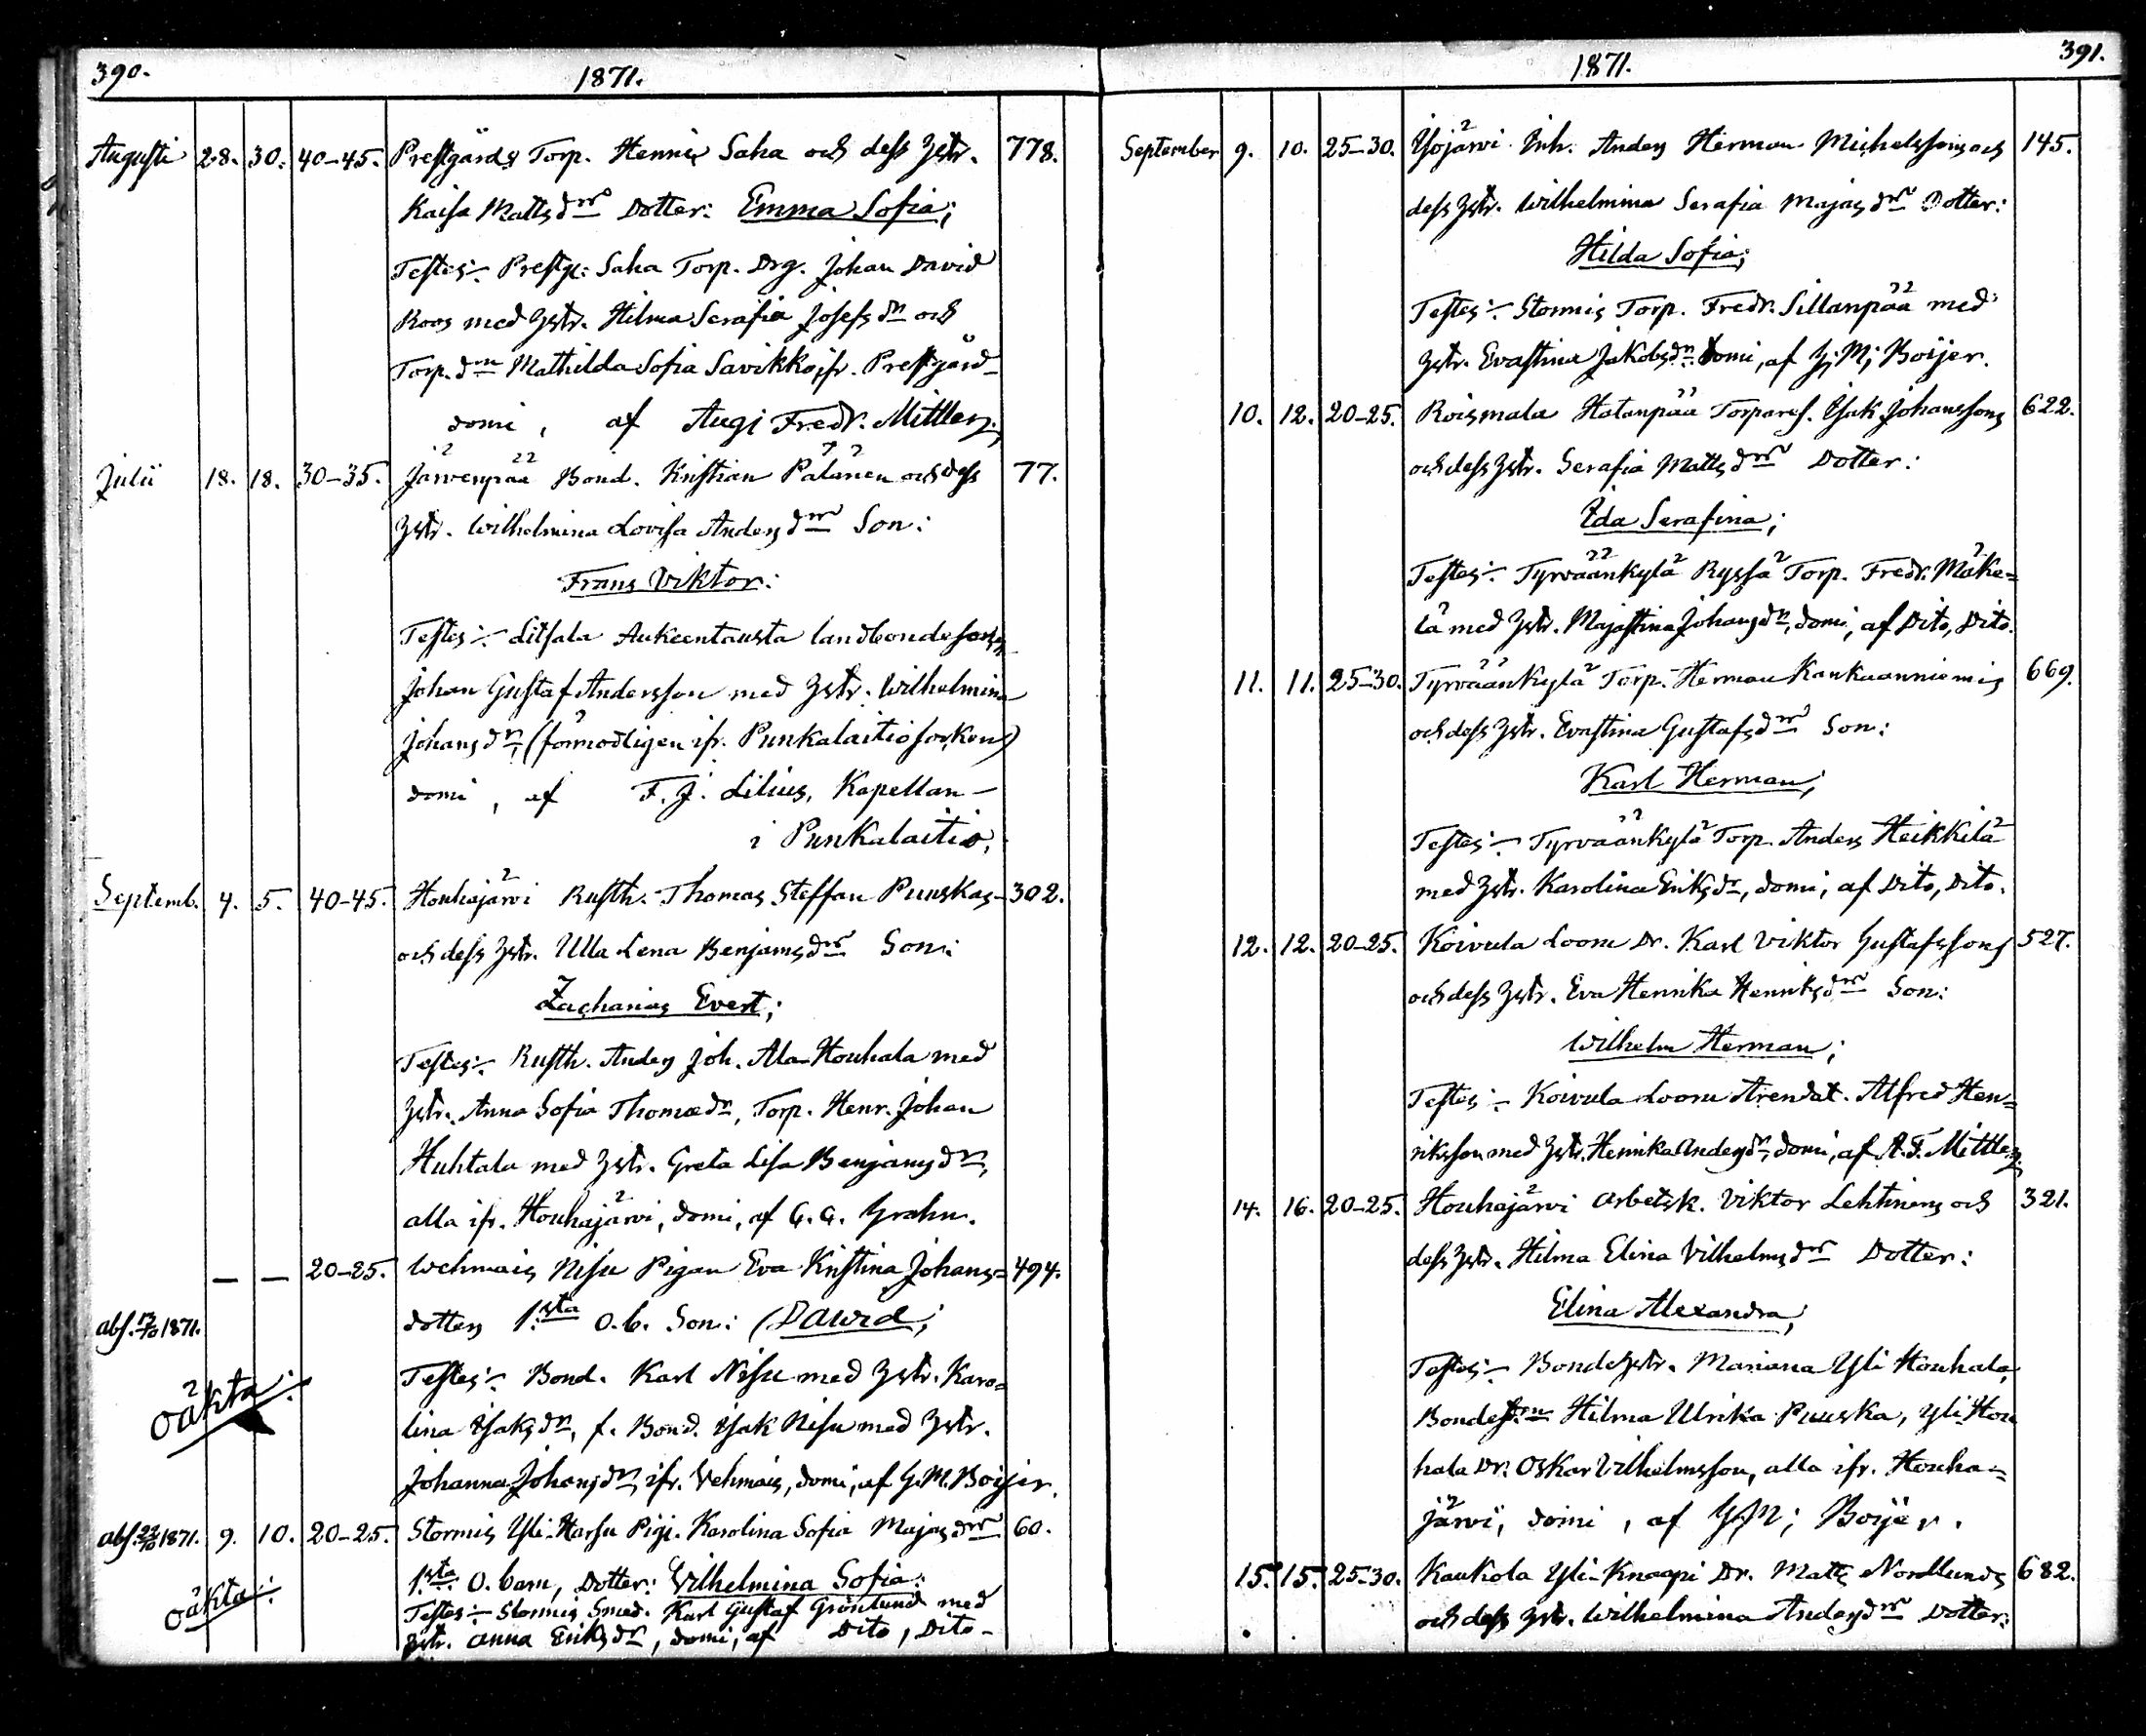 390.
1871.
Augusti 28. 30. 40-45. Prestgårds Torp. Henrik Saha och dess Hstr. 778.
Kaisa Mattsdrs Dotter: Emma Sofia;
Testes:- Prestg: Saha Torp. Drg. Johan David
Roos med Hstr. Hilma Serafia Josefsdr och
Torp.drn Mathilda Sofia Savikko, ifr. Prestgård
domi, af Aug; Fredr. Mittler.
Julii 18. 18. 30-35. Järvenpää Bond. Kristian Pätänen och dess 77.
Hstr. Wilhelmina Lovisa Andersdrs Son:
Frans Viktor:
Testes:- Litsala Aukeentausta landbondesonen
Johan Gustaf Andersson med Hstr. Wilhelmina
Johansdr, (förmodligen ifr. Punkalaitio socken)
domi, af F. J. Lilius, Kapellan
i Punkalaitio.
Septemb. 4. 5. 40-45. Houhajärvi Rusth. Thomas Steffan Puuskas 302.
och dess Hstr. Ulla Lena Benjamsdrs Son:
Zacharias Evert;
Testes:- Rusth. Anders Joh. Ala-Houhala med
Hstr. Anna Sofia Thomædr, Torp. Henr. Johan
Huhtala med Hstr. Greta Lisa Benjamsdr,
alla ifr. Houhajärvi, domi, af G. A. Grahn.
— — 20-25. Wehmais Nisu Pigan Eva Kristina Johans= 494.
abs. 1871. dotters 1.sta O.b. Son: David;
oäkta:- Testes:- Bond. Karl Nisu med Hstr. Karo=
lina Isaksdr, f. Bond. Isak Nisu med Hstr.
Johanna Johansdr, ifr. Vehmais, domi, af G. M. Boijer.
abs. 1871. 9. 10. 20-25. Stormis Yli-Harsu Pig. Karolina Sofia Majasdrs 60.
oäkta:- 1.sta O. barn, Dotter: Vilhelmina Sofia:
Testes:- Stormis Smed. Karl Gustaf Grönlund med
Hstr. Anna Eriksdr, domi, af Dito, Dito-
391.
1871.
September 9. 10. 25-30. Isojärvi Inh. Anders Herman Michelssons och 145.
dess Hstr. Wilhelmina Serafia Majasdrs Dotter:
Hilda Sofia;
Testes:- Stormis Torp. Fredr. Sillanpää med
Hstr. Evastina Jakobsdr domi, af G; M; Boijer.
10. 12. 20-25. Roismala Hatanpää Torpares. Isak Johanssons 622.
och dess Hstr. Serafia Mattsdrs Dotter:
Ida Serafina;
Testes:- Tyrväänkylä Ryssä Torp. Fredr. Mäke=
lä med Hstr. Majastina Johansdr, domi, af Dito, Dito.
11. 11. 25-30. Tyrväänkylä Torp. Herman Kankaanniemis 669.
och dess Hstr. Evastina Gustafsdrs Son:
Karl Herman;
Testes:- Tyrväänkylä Torp. Anders Heikkilä
med Hstr. Karolina Eriksdr, domi, af Dito, Dito.
12. 12. 20-25. Koivula Loom Dr. Karl Viktor Gustafssons 527.
och dess Hstr. Eva Henrika Henriksdrs Son:
Wilhelm Herman;
Testes:- Koivula Loom Arendat. Alfred Hen=
riksson med Hstr. Henrika Andersdr, domi, af A. F. Mittler.
14. 16. 20-25. Houhajärvi Arbetsk. Viktor Lehtinens och 321.
dess Hstr. Hilma Elina Vilhelmsdrs Dotter:
Elina Alexandra;
Testes:- Bondehstr. Mariana Yli Houhala,
Bondedrn Hilma Ulrika Puuska, Yli Hou
hala Dr. Oskar Vilhelmsson, alla ifr. Houha=
järvi, domi, af G; M; Boijer.
15. 15. 25-30. Kaukola Yli-Knaapi Dr. Matts Nordlunds 682.
och dess Hstr. Wilhelmina Andersdrs Dotter: